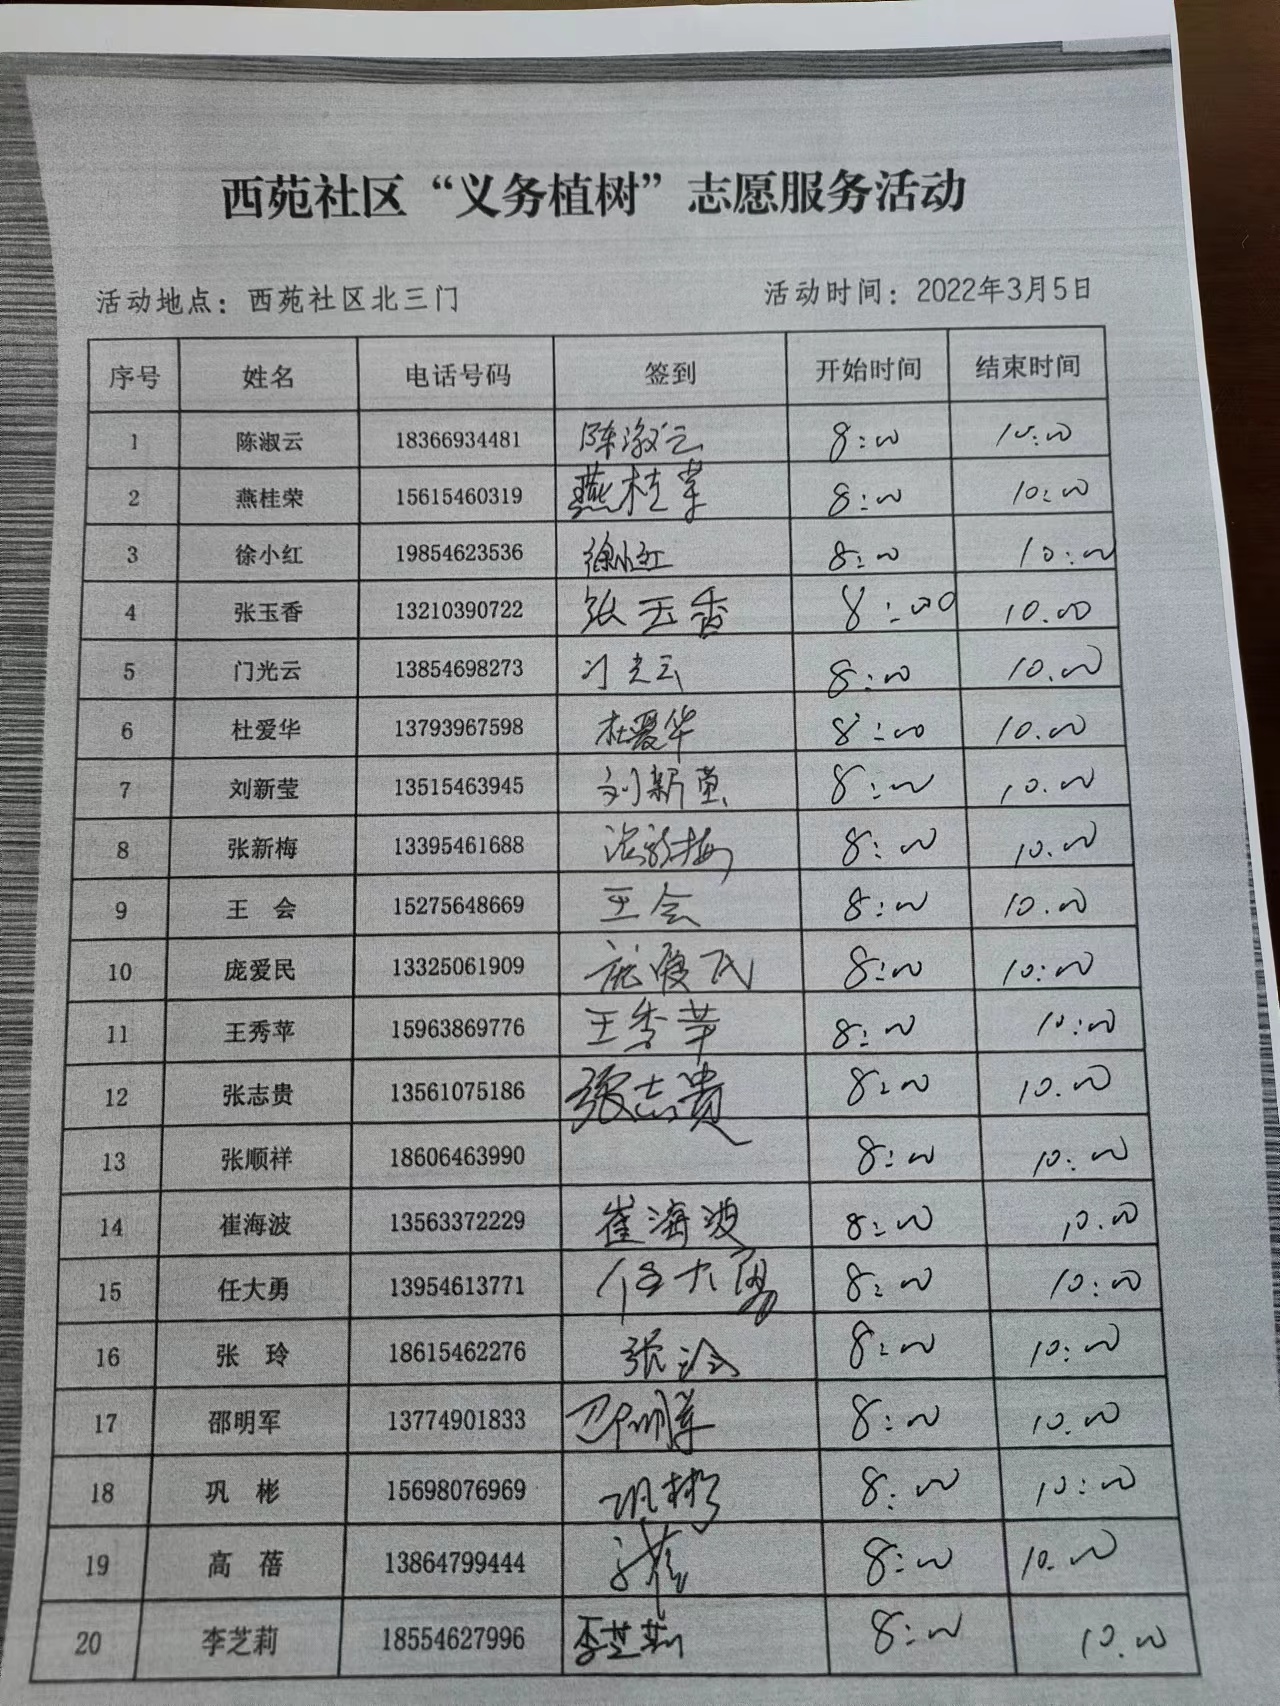 西苑社区“义务植树”志愿服务活动
活动地点：西苑社区北三门 活动时间：2022年3月5日
序号 姓名 电话号码 签到 开始时间 结束时间
1 陈淑云 18366934481 陈淑云 8:00 10:00
2 燕桂荣 15615460319 燕桂荣 8:00 10:00
3 徐小红 19854623536 徐小红 8:00 10:00
4 张玉香 13210390722 张玉香 8:00 10.00
5 门光云 13854698273 门光云 8:00 10.00
6 杜爱华 13793967598 杜爱华 8:00 10.00
7 刘新莹 13515463945 刘新莹 8:00 10.00
8 张新梅 13395461688 张新梅 8:00 10.00
9 王 会 15275648669 王会 8:00 10.00
10 庞爱民 13325061909 庞爱民 8:00 10:00
11 王秀苹 15963869776 王秀苹 8:00 10:00
12 张志贵 13561075186 张志贵 8:00 10.00
13 张顺祥 18606463990 8:00 10:00
14 崔海波 13563372229 崔海波 8:00 10.00
15 任大勇 13954613771 任大勇 8:00 10:00
16 张 玲 18615462276 张玲 8:00 10:00
17 邵明军 13774901833 邵明军 8:00 10.00
18 巩 彬 15698076969 巩彬 8:00 10:00
19 高 蓓 13864799444 高蓓 8:00 10.00
20 李芝莉 18554627996 李芝莉 8:00 10.00